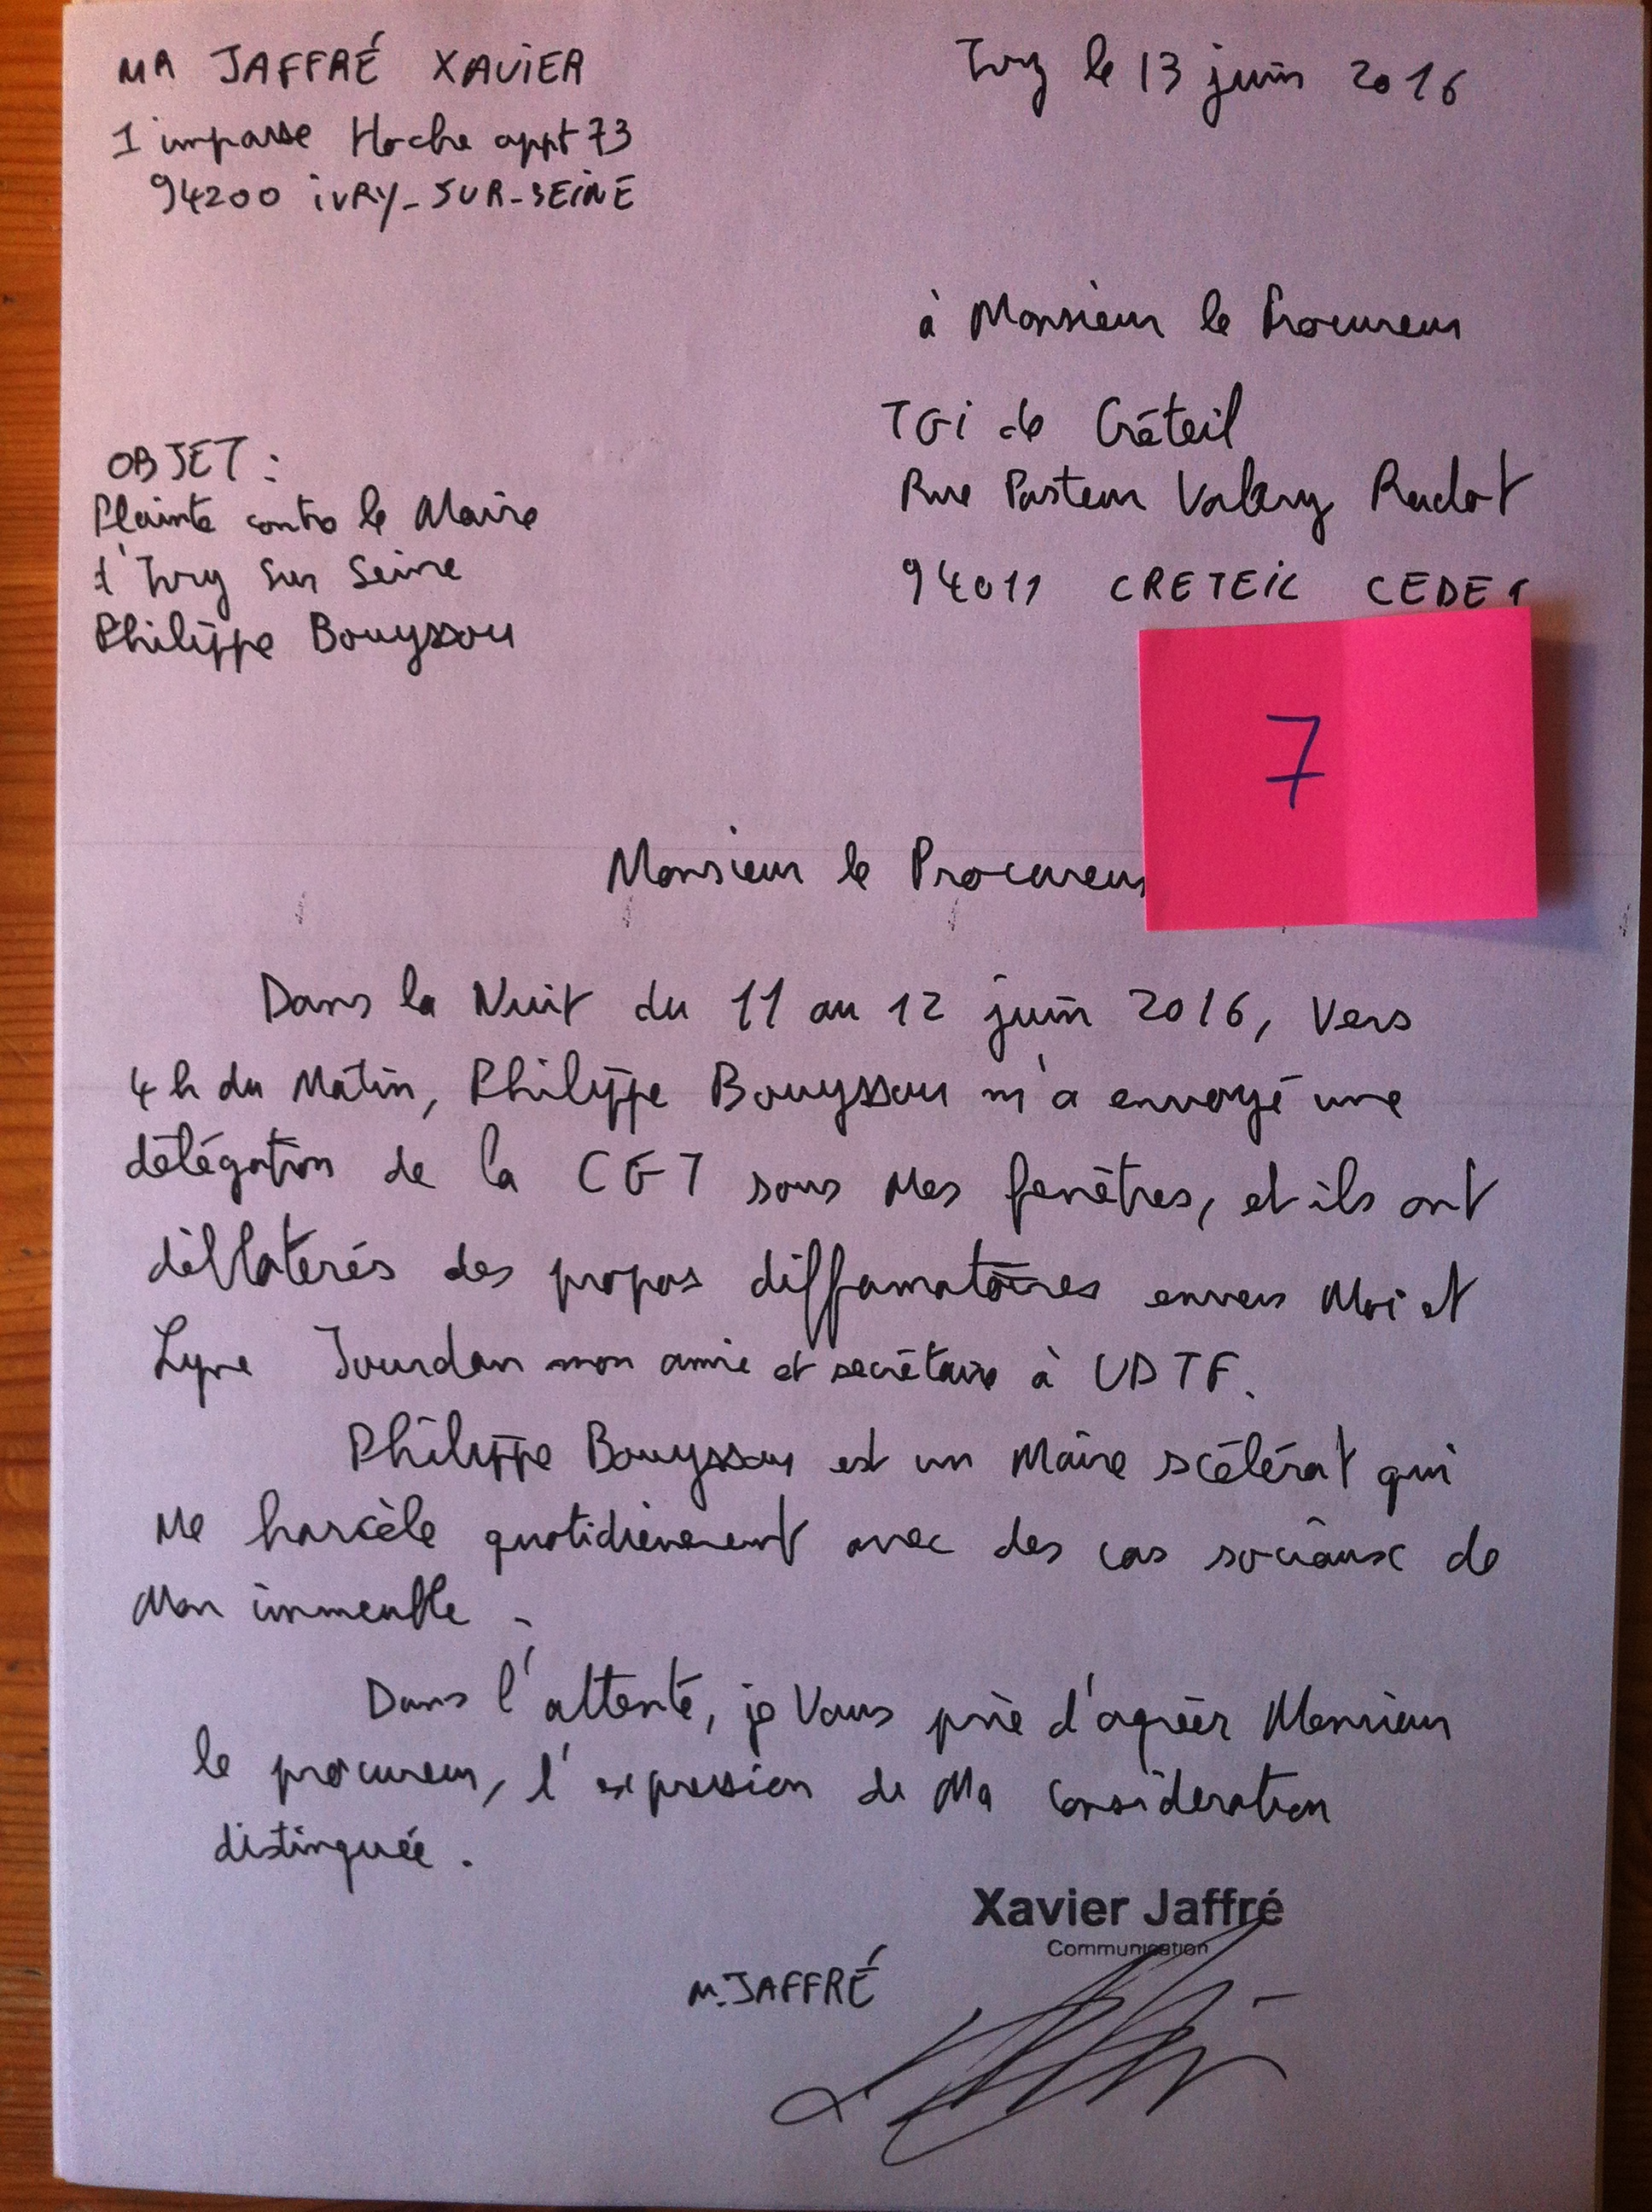 MR JAFFRÉ XAVIER
1 impasse Hoche appt 73
94200 iVRY-SUR-SEINE
Ivry le 13 juin 2016
à Monsieur le Procureur
TGi de Créteil
Rue Pasteur Valery Radot
94011 CRETEIL CEDEX
OBJET :
Plainte contre le Maire
d'Ivry sur Seine
Philippe Bouyssou
7
Monsieur le Procureur
Dans la Nuit du 11 au 12 juin 2016, Vers
4h du Matin, Philippe Bouyssou m'a envoyé une
délégation de la CGT sous Mes fenêtres, et ils ont
déblatérés des propos diffamatoires envers Moi et
Lyne Jourdan mon amie et secrétaire à UDTF.
Philippe Bouyssou est un Maire scélérat qui
Me harcèle quotidiènement avec des cas sociaux de
Mon immeuble.
Dans l'attente, je Vous prie d'agréer Monsieur
le procureur, l'expression de Ma considération
distinguée.
Xavier Jaffré
Communication
M. JAFFRÉ